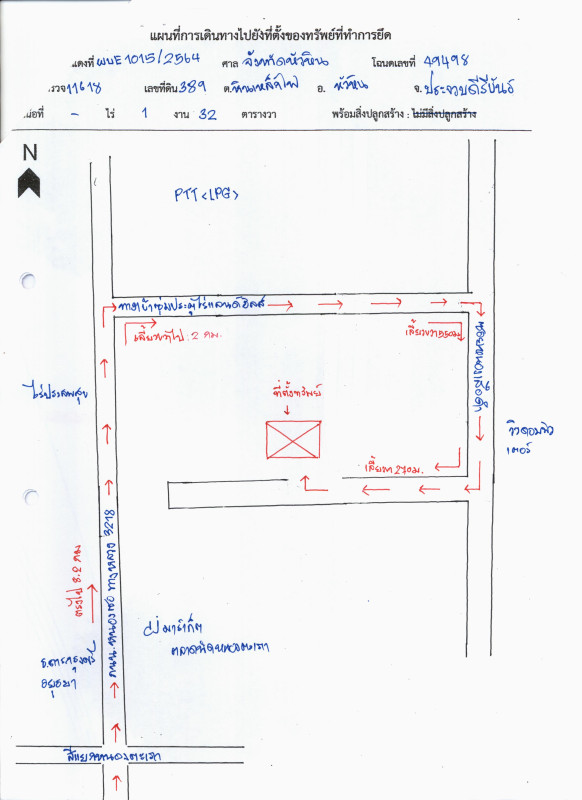 แผนที่การเดินทางไปยังที่ตั้งของทรัพย์ที่ทำการยึด
แดงที่ ผบE1015/2564 ศาล จังหวัดหัวหิน โฉนดเลขที่ 49498
รวจ 11618 เลขที่ดิน 389 ต.หินเหล็กไฟ อ. หัวหิน จ.ประจวบคีรีขันธ์
น่อที่ - ไร่ 1 งาน 32 ตารางวา พร้อมสิ่งปลูกสร้าง : ไม่มีสิ่งปลูกสร้าง
N
PTT <LPG>
ทางเข้าซุ้มประตูไร่แลนด์ฮิลล์
เลี้ยวขวาไป 2 กม.
เลี้ยวขวา 550 ม.
ซอยหนองเสือดำ
ที่ตั้งทรัพย์
ไร่ประสพสุข
เลี้ยวขวา 270 ม.
ถนน.หนองซอ ทางหลวง 3218
ตรงไป 8.2 กม
ธ.อาคารกรุงศรี
อยุธยา
ตลาดนัดหนองตะเภา
สี่แยกหนองตะเภา